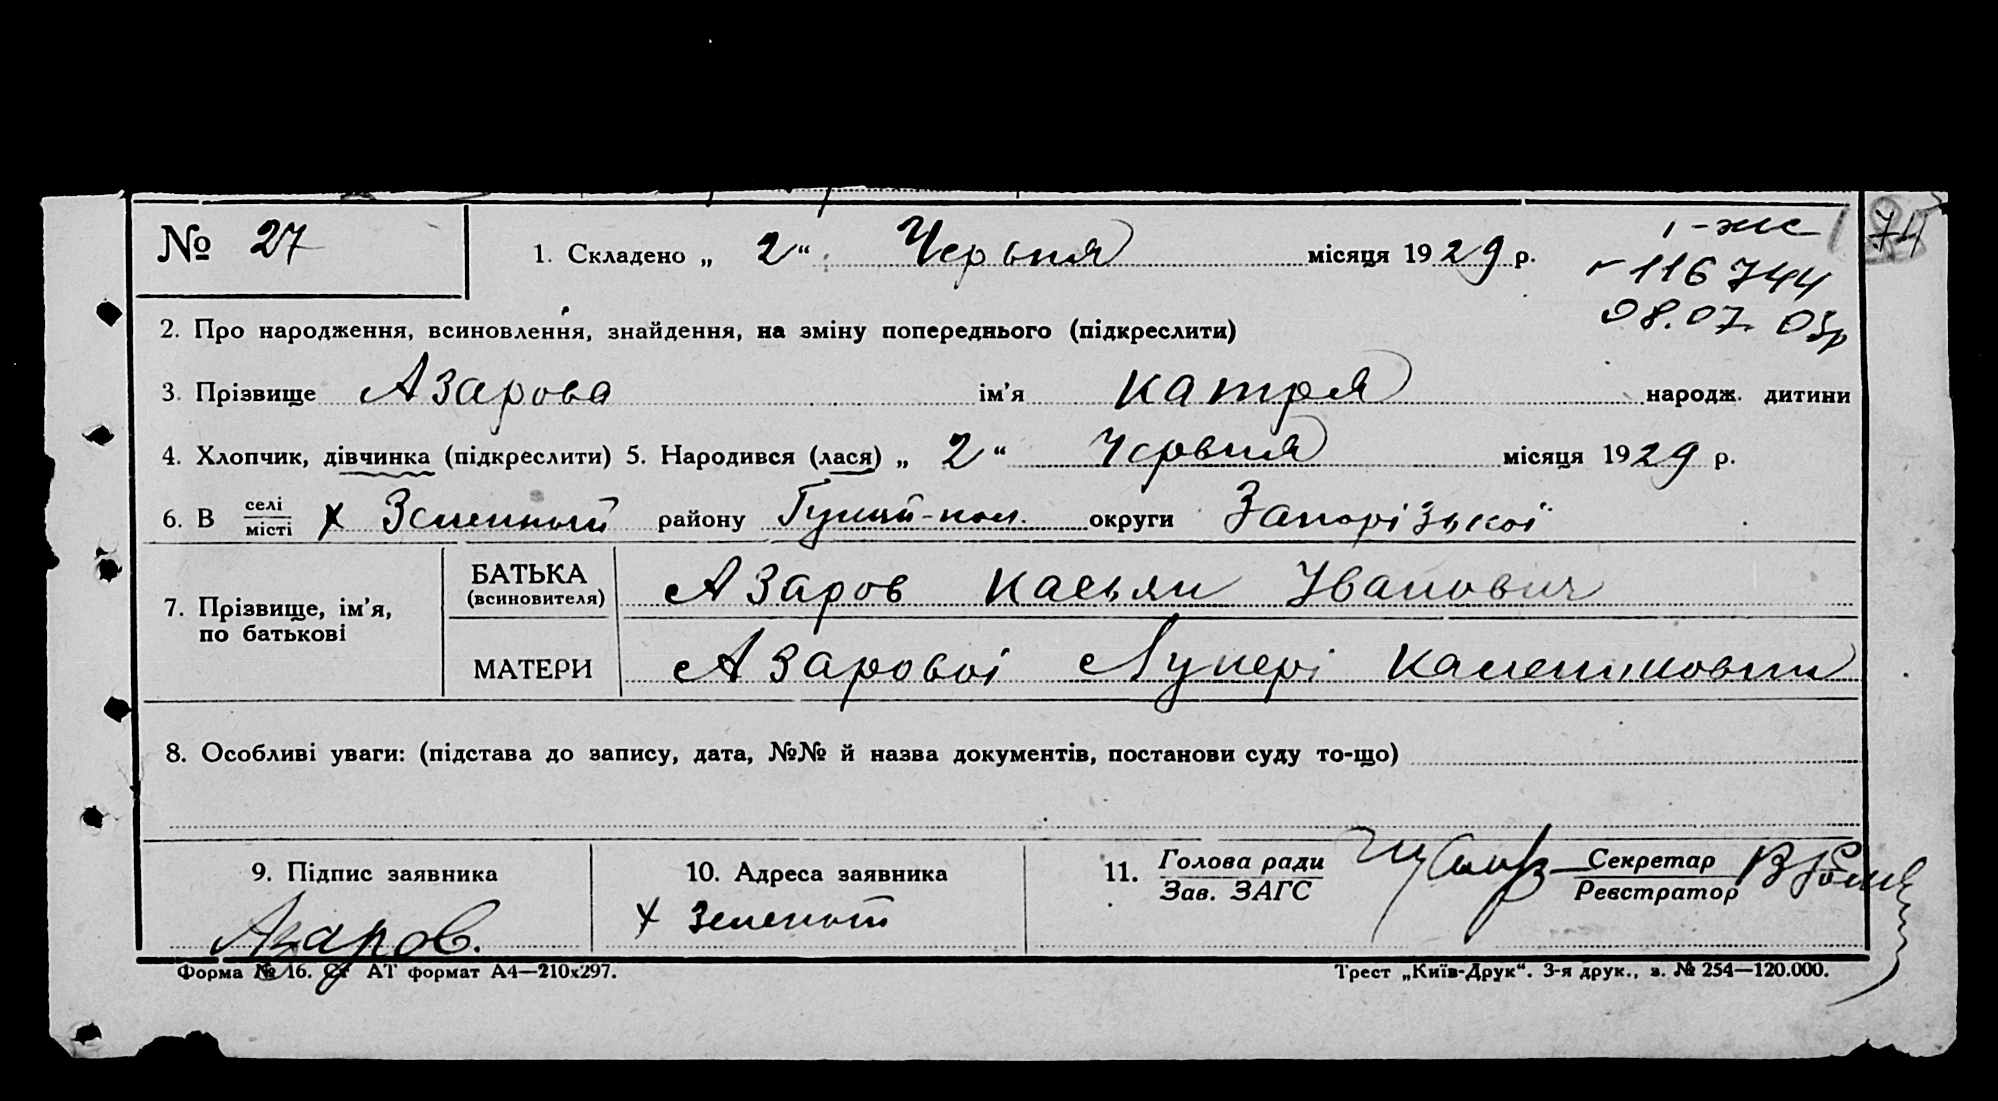 № 27
1. Складено „ 2 “ Червня місяця 1929 р.
1-жс
74
116744
08.07.05р
2. Про народження, всиновлення, знайдення, на зміну попереднього (підкреслити)
3. Прізвище Азарова ім’я Катря народж. дитини
4. Хлопчик, дівчинка (підкреслити) 5. Народився (лася) „ 2 “ Червня місяця 1929 р.
6. В селі місті х Зеленый району Гуляй-пол. округи Запорізькоі
7. Прізвище, ім’я, по батькові
БАТЬКА (всиновителя) Азаров Касьян Іванович
МАТЕРИ Азаровоі Лукері
8. Особливі уваги: (підстава до запису, дата, №№ й назва документів, постанови суду то-що)
9. Підпис заявника 10. Адреса заявника 11. Голова ради Зав. ЗАГС Секретар Реєстратор
Азаров. х Зеленый
Форма № 16. Ст АТ формат А4—210х297. Трест „Київ-Друк“. 3-я друк., з. № 254—120.000.